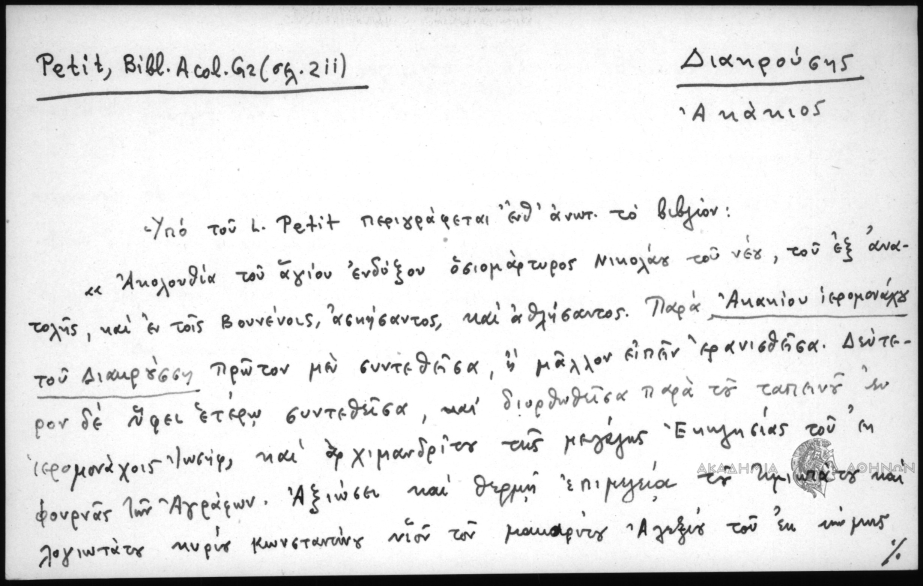 Petit, Bibl. Acol. Gr (σελ. 211)
Διακρούσης
Ἀκάκιος
Ὑπό τοῦ L. Petit περιγράφεται ἐνθ' ἀνωτ. τό βιβλίον:
« Ἀκολουθία τοῦ ἁγίου ἐνδόξου ὁσιομάρτυρος Νικολάου τοῦ νέου, τοῦ ἐξ ἀνα-
τολῆς, καί ἐν τοῖς Βουνένοις, ἀσκήσαντος, καί ἀθλήσαντος. Παρά Ἀκακίου ἱερομονάχου
τοῦ Διακρούσση πρῶτον μέν συντεθεῖσα, ἤ μᾶλλον εἰπεῖν ἐρανισθεῖσα. Δεύτε-
ρον δέ ὕφει ἑτέρῳ συντεθεῖσα, καί διορθωθεῖσα παρά τοῦ ταπεινοῦ ἐν
ἱερομονάχοις Ἰωσήφ, καί ἀρχιμανδρίτου τῆς μεγάλης Ἐκκλησίας τοῦ ἐκ
φουρνᾶς τῶν Ἀγράφων. Ἀξιώσει καί θερμῇ ἐπιμελείᾳ τοῦ τιμιωτάτου καί
λογιωτάτου κυρίου Κωνσταντίνου υἱοῦ τοῦ μακαρίτου Ἀλεξίου τοῦ ἐκ κώμης
./.
ΑΚΑΔΗΜΙΑ ΑΘΗΝΩΝ